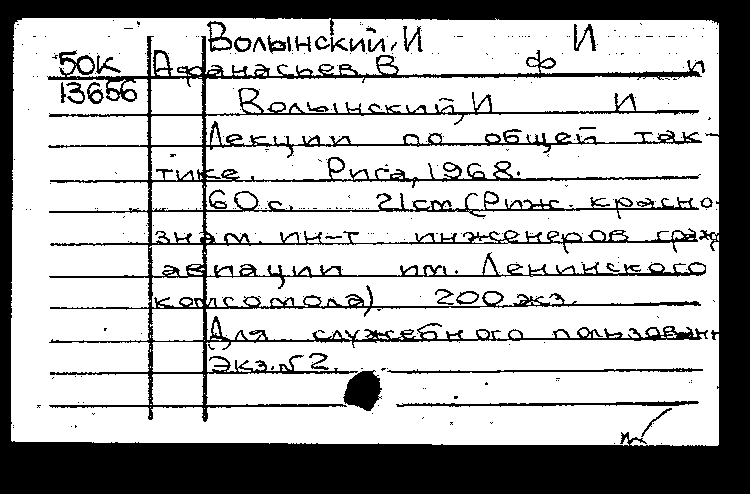 Волынский, И И
50К Афанасьев, В Ф п
13656 Волынский, И И
Лекции по общей так-
тике. Рига, 1968.
60 с. 21см (Риж. красно-
знам. ин-т инженеров граж
авиации им. Ленинского
комсомола) 200 экз.
Для служебного пользован
Экз. №2.